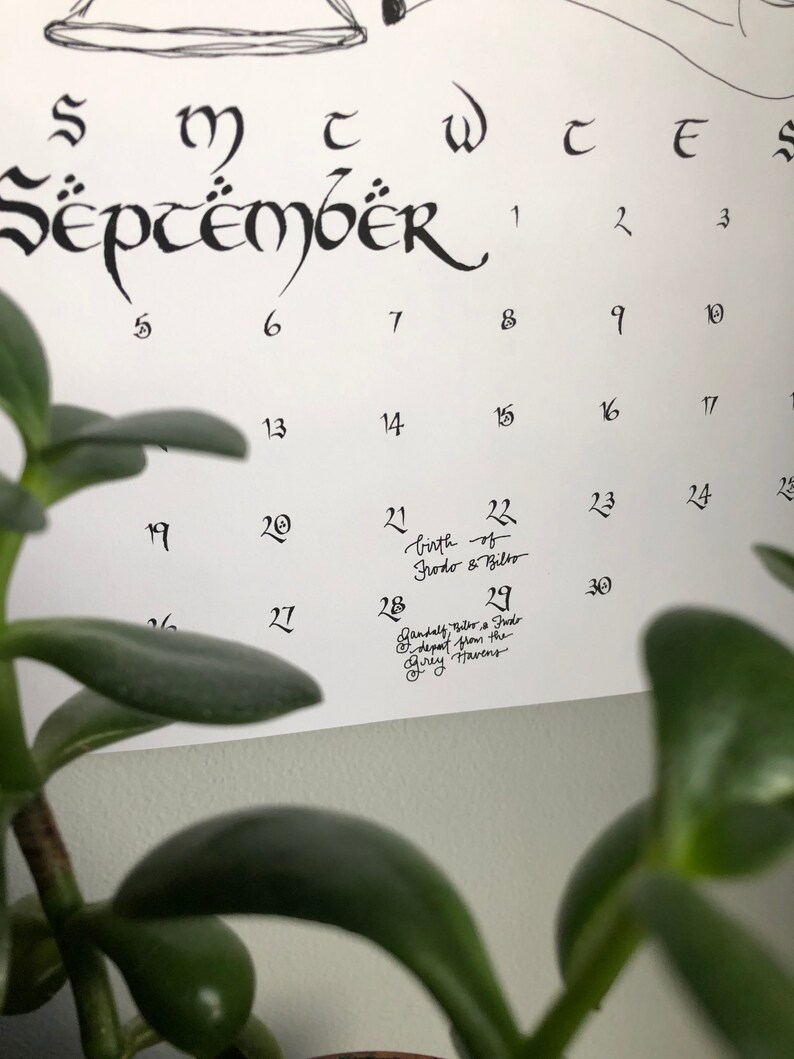 S M T W T F S
September 1 2 3
5 6 7 8 9 10
13 14 15 16 17
19 20 21 22 23 24 25
birth of
Frodo & Bilbo
26 27 28 29 30
Gandalf, Bilbo, & Frodo
depart from the
Grey Havens